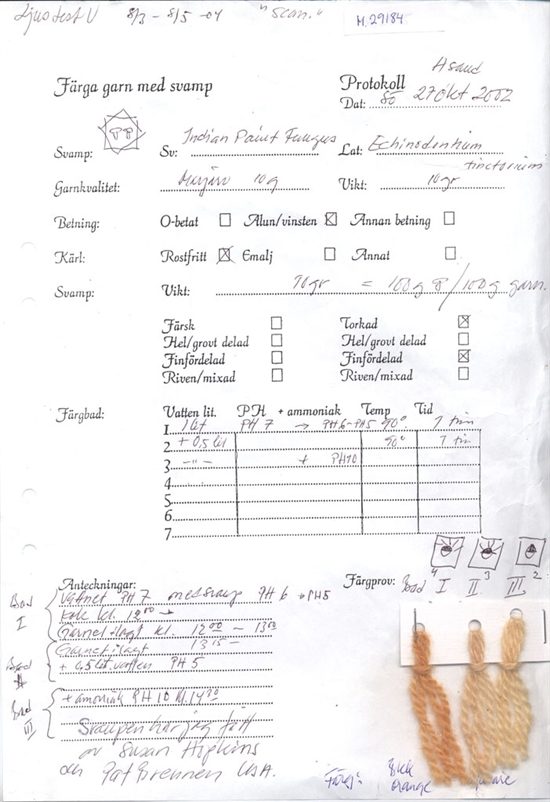 Ljustest V 8/3 - 8/5 -04 "scan." M. 29184
Asand
Färga garn med svamp
Protokoll
Dat: 27 okt 2002
Svamp: Sv: Indian Paint Fungus Lat: Echinodontium
tinctorium
Garnkvalitet: 10g Vikt: 10gr
Betning: O-betat Alun/vinsten Annan betning
Kärl: Rostfritt Emalj Annat
Svamp: Vikt: 10gr = 100g /100g garn.
Färsk Torkad
Hel/grovt delad Hel/grovt delad
Finfördelad Finfördelad
Riven/mixad Riven/mixad
Färgbad: Vatten lit. PH + ammoniak Temp Tid
1 1 lit PH 7 → PH6-PH5 90° 1 tim
2 + 0,5 lit 90° 1 tim
3 -"- + PH10
4
5
6
7
Anteckningar:
Färgprov: Bad I 4 II 3 III 2
Bad I
Vattnet PH 7 med svamp PH 6 → PH5
Kok kl. 12 00 →
Garnet ilagt kl. 12 00 - 13 00
Bad II
Garnet ilagt 13 15 -
+ 0,5 lit vatten PH 5
Bad III
+ amoniak PH 10 kl. 14 20
Svampen har jag fått
av Susan Hopkins
och Pat Brennen USA.
Färg: orange